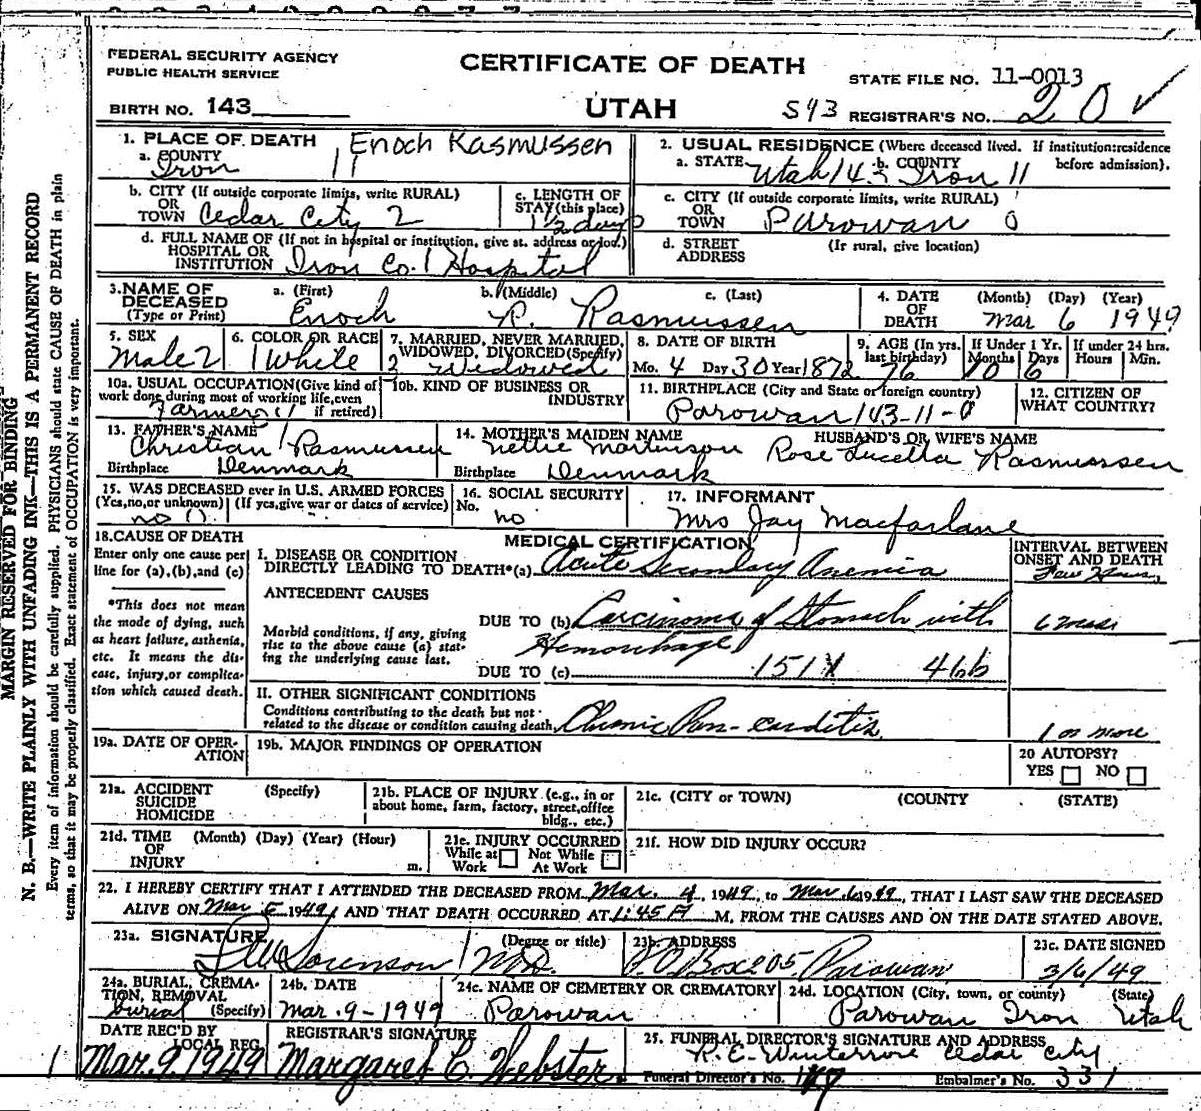 FEDERAL SECURITY AGENCY
PUBLIC HEALTH SERVICE
CERTIFICATE OF DEATH
STATE FILE NO. 11-0013
BIRTH NO. 143
UTAH
S93 REGISTRAR'S NO. 20 ✓
1. PLACE OF DEATH Enoch Rasmussen
a. COUNTY Iron 11
2. USUAL RESIDENCE (Where deceased lived. If institution: residence before admission).
a. STATE Utah 143 b. COUNTY Iron 11
b. CITY (If outside corporate limits, write RURAL) OR TOWN Cedar City 2
c. LENGTH OF STAY (this place) 1½ days
c. CITY (If outside corporate limits, write RURAL) OR TOWN Parowan 0
d. FULL NAME OF (If not in hospital or institution, give st. address or loc.) HOSPITAL OR INSTITUTION Iron Co. 1 Hospital
d. STREET ADDRESS (If rural, give location)
3. NAME OF DECEASED (Type or Print)
a. (First) Enoch b. (Middle) R. c. (Last) Rasmussen
4. DATE OF DEATH (Month) (Day) (Year) Mar 6 1949
5. SEX Male 2
6. COLOR OR RACE 1 White
7. MARRIED, NEVER MARRIED, WIDOWED, DIVORCED (Specify) Widowed
8. DATE OF BIRTH Mo. 4 Day 30 Year 1872
9. AGE (In yrs. last birthday) 76 If Under 1 Yr. Months 10 Days 6 If under 24 hrs. Hours Min.
10a. USUAL OCCUPATION (Give kind of work done during most of working life, even if retired) Farmer
10b. KIND OF BUSINESS OR INDUSTRY
11. BIRTHPLACE (City and State or foreign country) Parowan 143-11-0
12. CITIZEN OF WHAT COUNTRY?
13. FATHER'S NAME Christian Rasmussen
Birthplace Denmark
14. MOTHER'S MAIDEN NAME Nettie Martinson
Birthplace Denmark
HUSBAND'S OR WIFE'S NAME Rose Lucella Rasmussen
15. WAS DECEASED ever in U.S. ARMED FORCES (Yes, no, or unknown) (If yes, give war or dates of service) no 0
16. SOCIAL SECURITY No. no
17. INFORMANT Mrs Jay Macfarlane
18. CAUSE OF DEATH
Enter only one cause per line for (a), (b), and (c)
*This does not mean the mode of dying, such as heart failure, asthenia, etc. It means the disease, injury, or complication which caused death.
MEDICAL CERTIFICATION
INTERVAL BETWEEN ONSET AND DEATH
I. DISEASE OR CONDITION DIRECTLY LEADING TO DEATH* (a) Acute Secondary Anemia Few Hours
ANTECEDENT CAUSES
Morbid conditions, if any, giving rise to the above cause (a) stating the underlying cause last.
DUE TO (b) Carcinoma of Stomach with Hemorrhage
DUE TO (c) 151X 46b
II. OTHER SIGNIFICANT CONDITIONS
Conditions contributing to the death but not related to the disease or condition causing death. Chronic Pan-carditis 1 or more
19a. DATE OF OPERATION
19b. MAJOR FINDINGS OF OPERATION
20 AUTOPSY? YES NO
21a. ACCIDENT SUICIDE HOMICIDE (Specify)
21b. PLACE OF INJURY (e.g., in or about home, farm, factory, street, office bldg., etc.)
21c. (CITY or TOWN) (COUNTY (STATE)
21d. TIME OF INJURY (Month) (Day) (Year) (Hour) m.
21e. INJURY OCCURRED While at Work Not While At Work
21f. HOW DID INJURY OCCUR?
22. I HEREBY CERTIFY THAT I ATTENDED THE DECEASED FROM Mar. 4, 1949, to Mar 6 1949, THAT I LAST SAW THE DECEASED
ALIVE ON Mar 5 1949, AND THAT DEATH OCCURRED AT 1:45 A M, FROM THE CAUSES AND ON THE DATE STATED ABOVE.
23a. SIGNATURE Sorenson (Degree or title) MD.
23b. ADDRESS P.O. Box 205 Parowan
23c. DATE SIGNED 3/6/49
24a. BURIAL, CREMATION, REMOVAL (Specify) Burial
24b. DATE Mar. 9-1949
24c. NAME OF CEMETERY OR CREMATORY Parowan
24d. LOCATION (City, town, or county) (State) Parowan Iron Utah
DATE REC'D BY LOCAL REG. Mar. 9. 1949
REGISTRAR'S SIGNATURE Margaret C. Webster
25. FUNERAL DIRECTOR'S SIGNATURE AND ADDRESS Cedar City
Funeral Director's No. Embalmer's No. 331
MARGIN RESERVED FOR BINDING
N. B.—WRITE PLAINLY WITH UNFADING INK—THIS IS A PERMANENT RECORD
Every item of information should be carefully supplied. PHYSICIANS should state CAUSE OF DEATH in plain
terms, so that it may be properly classified. Exact statement of OCCUPATION is very important.